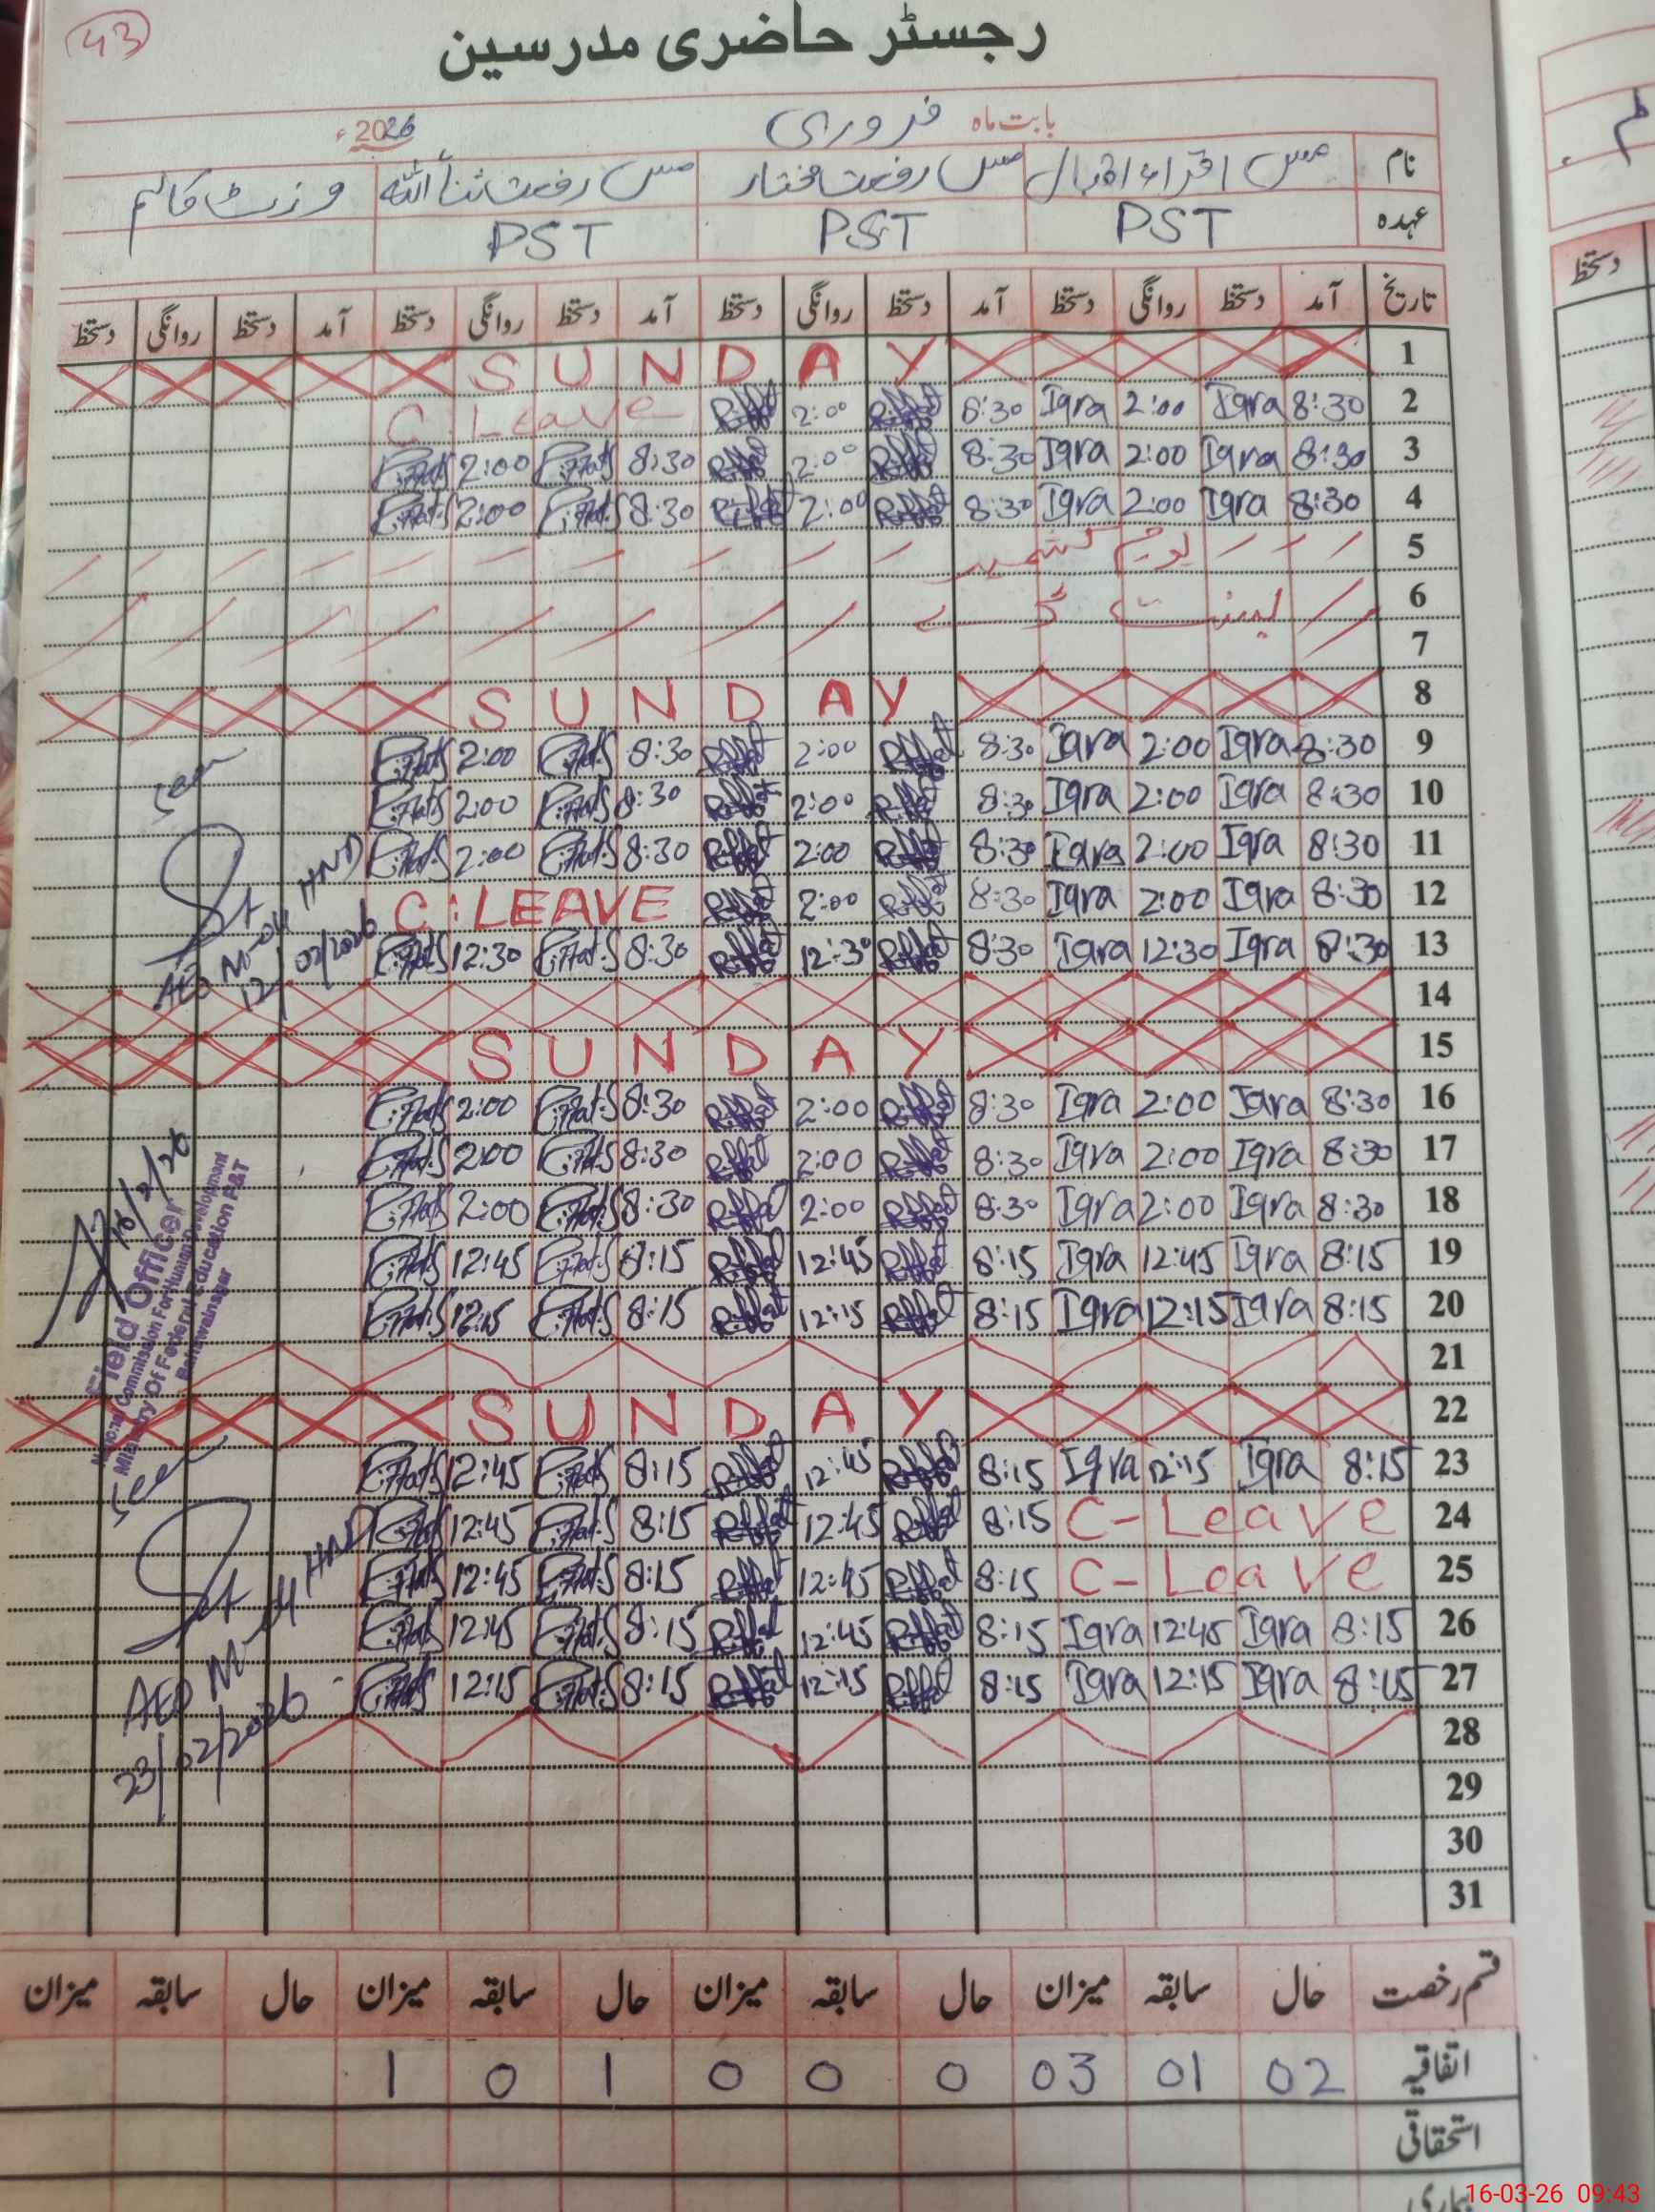 43
رجسٹر حاضری مدرسین
بابت ماہ فروری 2026ء
نام مس اقراء اقبال مس رفعت مختار مس رفعت ثناء اللہ وزٹ کالم
عہدہ PST PST PST
تاریخ آمد دستخط روانگی دستخط آمد دستخط روانگی دستخط آمد دستخط روانگی دستخط آمد دستخط روانگی دستخط
1 SUNDAY
2 8:30 Iqra 2:00 Iqra 8:30 Riffat 2:00 Riffat C.Leave
3 8:30 Iqra 2:00 Iqra 8:30 Riffat 2:00 Riffat 8:30 2:00
4 8:30 Iqra 2:00 Iqra 8:30 Riffat 2:00 Riffat 8:30 2:00
5 یوم کشمیر
6 بسنت
7
8 SUNDAY
9 8:30 Iqra 2:00 Iqra 8:30 Riffat 2:00 Riffat 8:30 2:00
10 8:30 Iqra 2:00 Iqra 8:30 Riffat 2:00 Riffat 8:30 2:00
11 8:30 Iqra 2:00 Iqra 8:30 Riffat 2:00 Riffat 8:30 2:00
12 8:30 Iqra 2:00 Iqra 8:30 Riffat 2:00 Riffat C.LEAVE
13 8:30 Iqra 12:30 Iqra 8:30 Riffat 12:30 Riffat 8:30 12:30
Seen
AEO M-04 HND
12/02/2026
14
15 SUNDAY
16 8:30 Iqra 2:00 Iqra 8:30 Riffat 2:00 Riffat 8:30 2:00
17 8:30 Iqra 2:00 Iqra 8:30 Riffat 2:00 Riffat 8:30 2:00
18 8:30 Iqra 2:00 Iqra 8:30 Riffat 2:00 Riffat 8:30 2:00
19 8:15 Iqra 12:45 Iqra 8:15 Riffat 12:45 Riffat 8:15 12:45
20 8:15 Iqra 12:15 Iqra 8:15 Riffat 12:15 Riffat 8:15 12:15
Field Officer
National Commission For Human Development
Ministry Of Federal Education P&T
Bahawalnagar
21
22 SUNDAY
23 8:15 Iqra 12:15 Iqra 8:15 Riffat 12:45 Riffat 8:15 12:45
24 C-Leave 8:15 Riffat 12:45 Riffat 8:15 12:45
25 C-Leave 8:15 Riffat 12:45 Riffat 8:15 12:45
26 8:15 Iqra 12:45 Iqra 8:15 Riffat 12:45 Riffat 8:15 12:45
27 8:15 Iqra 12:15 Iqra 8:15 Riffat 12:15 Riffat 8:15 12:15
Seen
AEO HND
23/02/2026
28
29
30
31
قسم رخصت حال سابقہ میزان حال سابقہ میزان حال سابقہ میزان حال سابقہ میزان
اتفاقیہ 02 01 03 0 0 0 1 0 1
استحقاقی
بیماری
دستخط
16-03-26 09:43